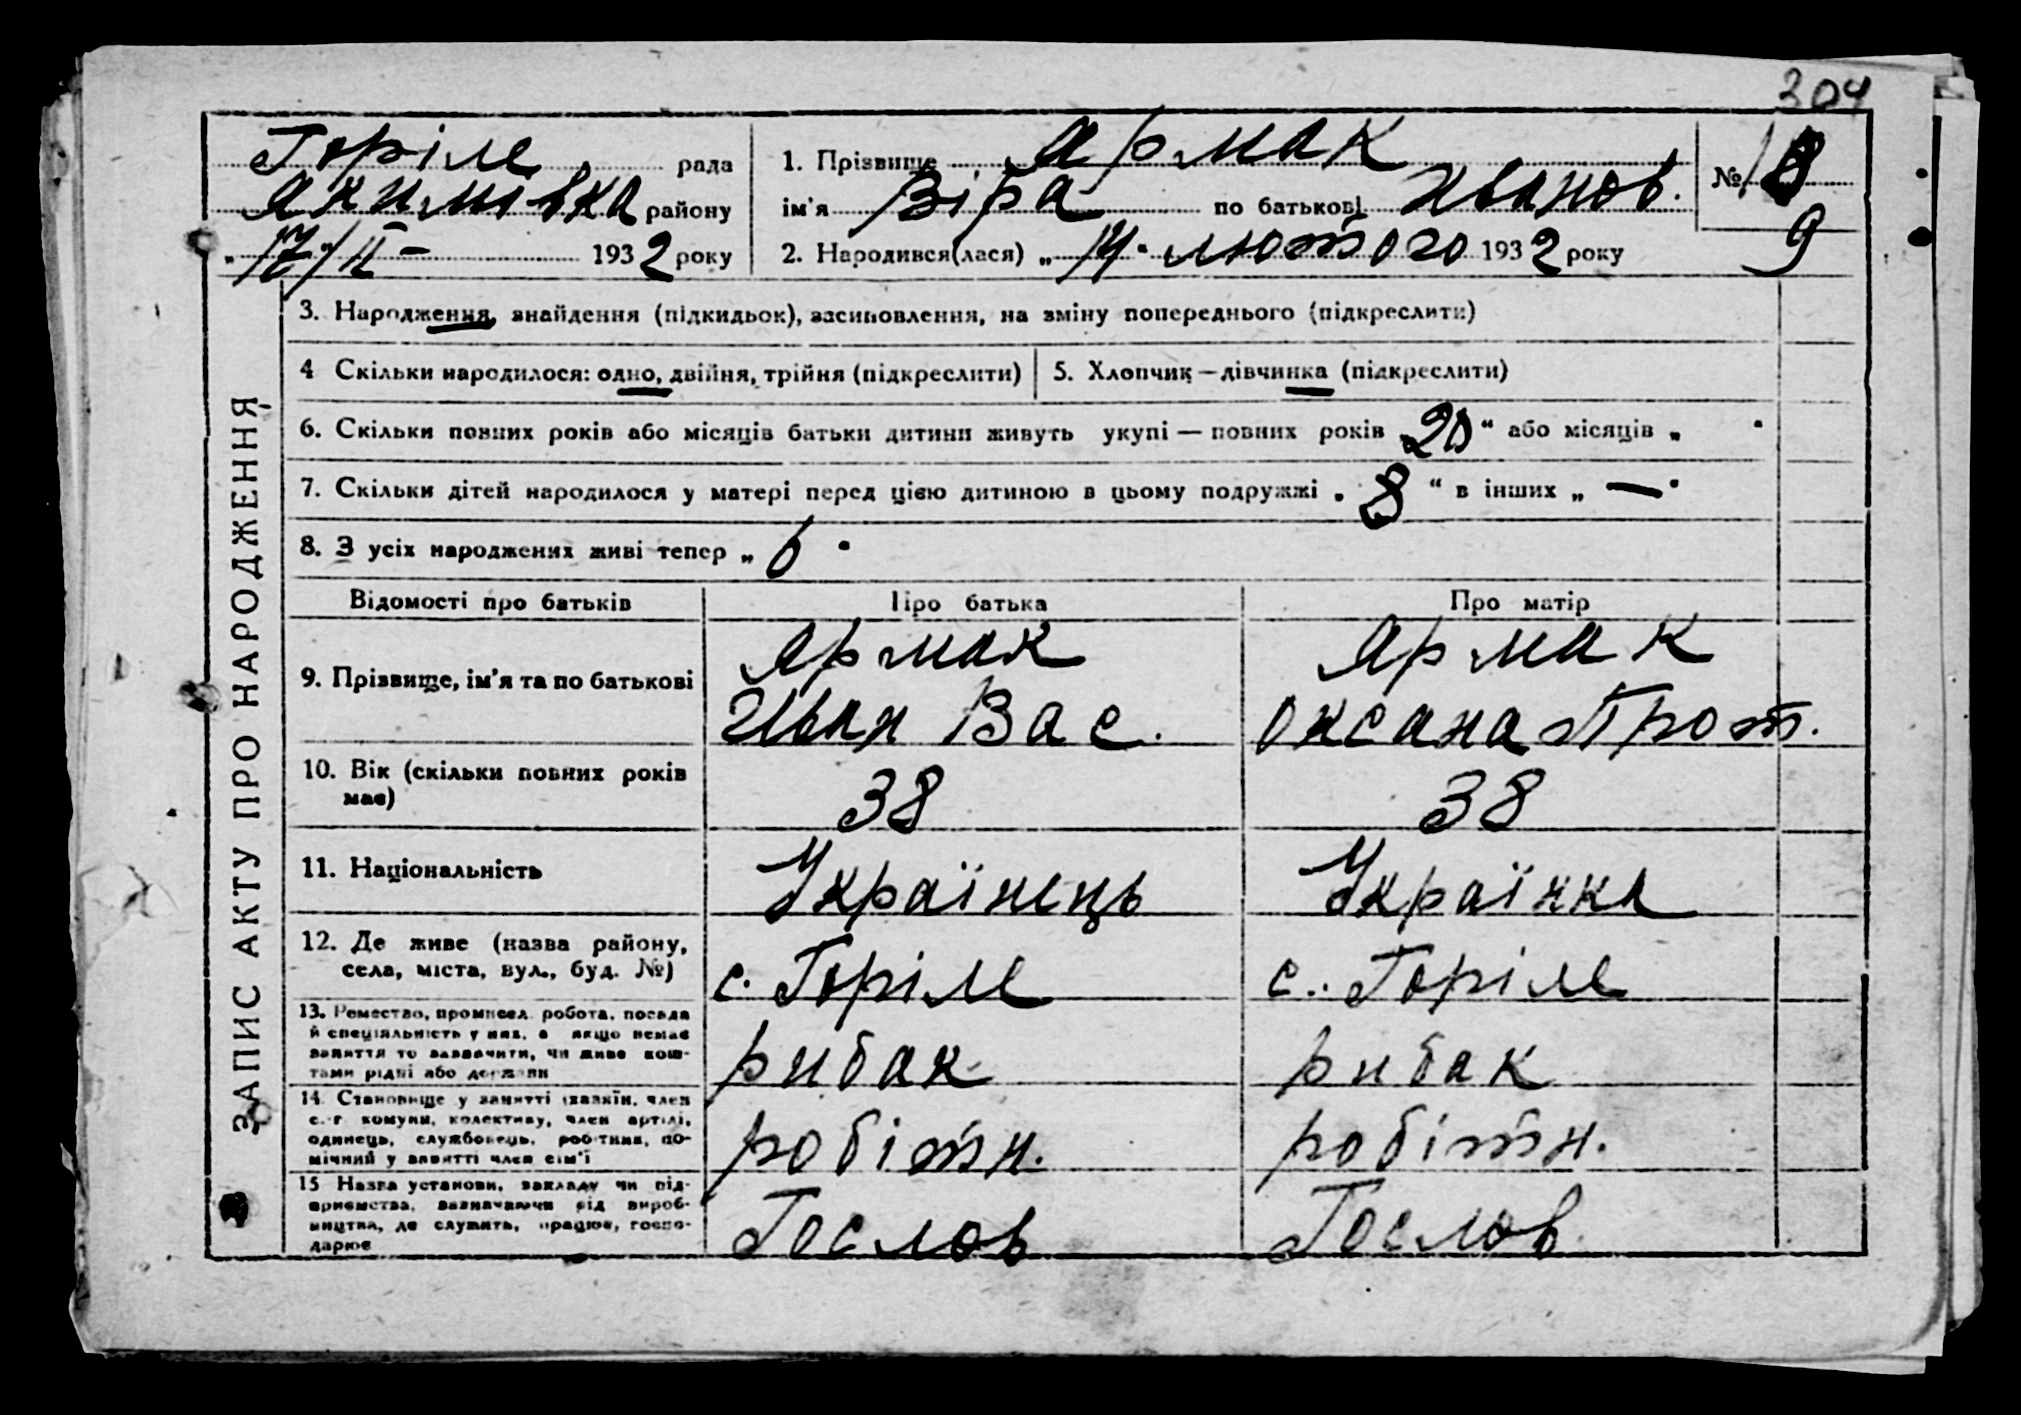 304
Горіле рада
Якимівка району
„ 17/II - 1932 року
1. Прізвище Ярмак
ім'я Віра по батькові Иванов.
2. Народився(лася) „ 14 " лютого 1932 року
№ 18
9
ЗАПИС АКТУ ПРО НАРОДЖЕННЯ
3. Народження, знайдення (підкидьок), засиновлення, на зміну попереднього (підкреслити)
4 Скільки народилося: одно, двійня, трійня (підкреслити)
5. Хлопчик — дівчинка (підкреслити)
6. Скільки повних років або місяців батьки дитини живуть укупі — повних років „ 20 “ або місяців „ "
7. Скільки дітей народилося у матері перед цією дитиною в цьому подружжі „ 8 “ в інших „ — "
8. З усіх народжених живі тепер „ 6 "
Відомості про батьків Про батька Про матір
9. Прізвище, ім'я та по батькові
Ярмак
Иван Вас.
Ярмак
Оксана Прот.
10. Вік (скільки повних років
має)
38 38
11. Національність Українець Українка
12. Де живе (назва району,
села, міста, вул., буд. №)
с. Горіле с. Горіле
13. Ремество, промисел, робота, посада
й спеціяльність у них, а якщо немає
заняття то зазначити, чи живе кош-
тами рідні або держави
рибак рибак
14. Становище у занятті (хазяїн, член
с.-г. комуни, колективу, член артілі,
одинець, службовець, робітник, по-
мічний у занятті член сім'ї
робітн. робітн.
15 Назва установи, закладу чи під-
приємства, зазначаючи від вироб-
ництва, де служить, працює, госпо-
дарює
Гослов Гослов